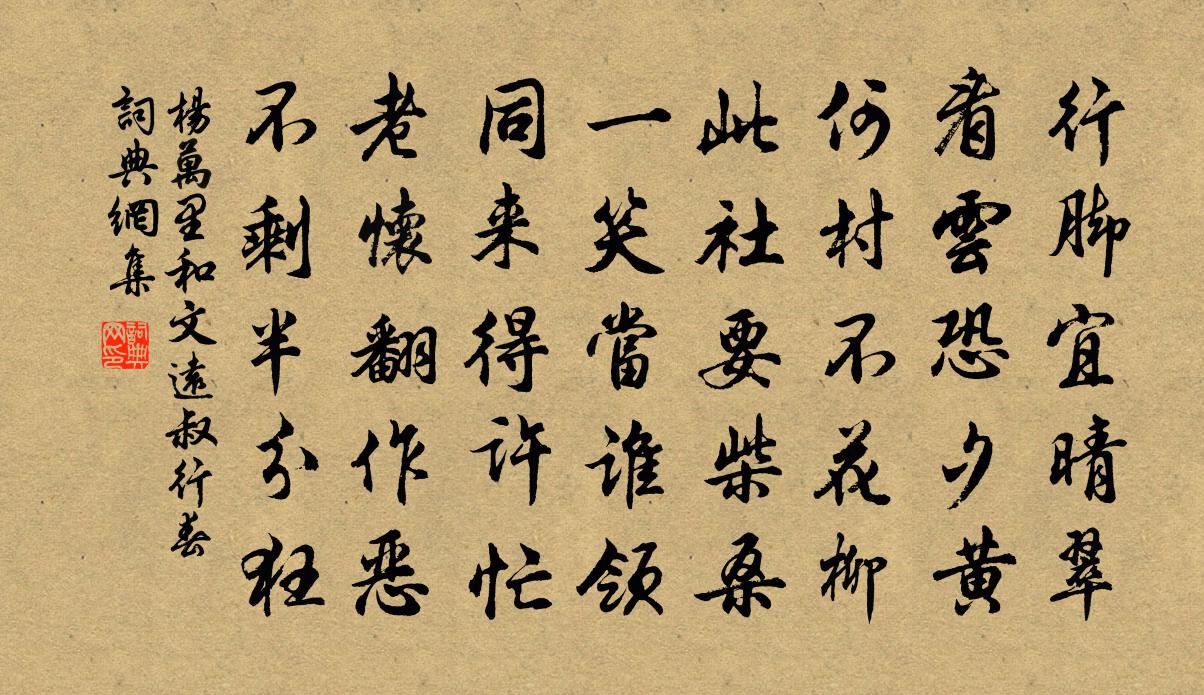 行脚宜晴翠
看雲恐夕黄
何村不花柳
此社要柴桑
一笑當誰領
同来得許忙
老懷翻作惡
不剩半分狂
楊萬里和文遠叔行春
詞典網集
詞典网印